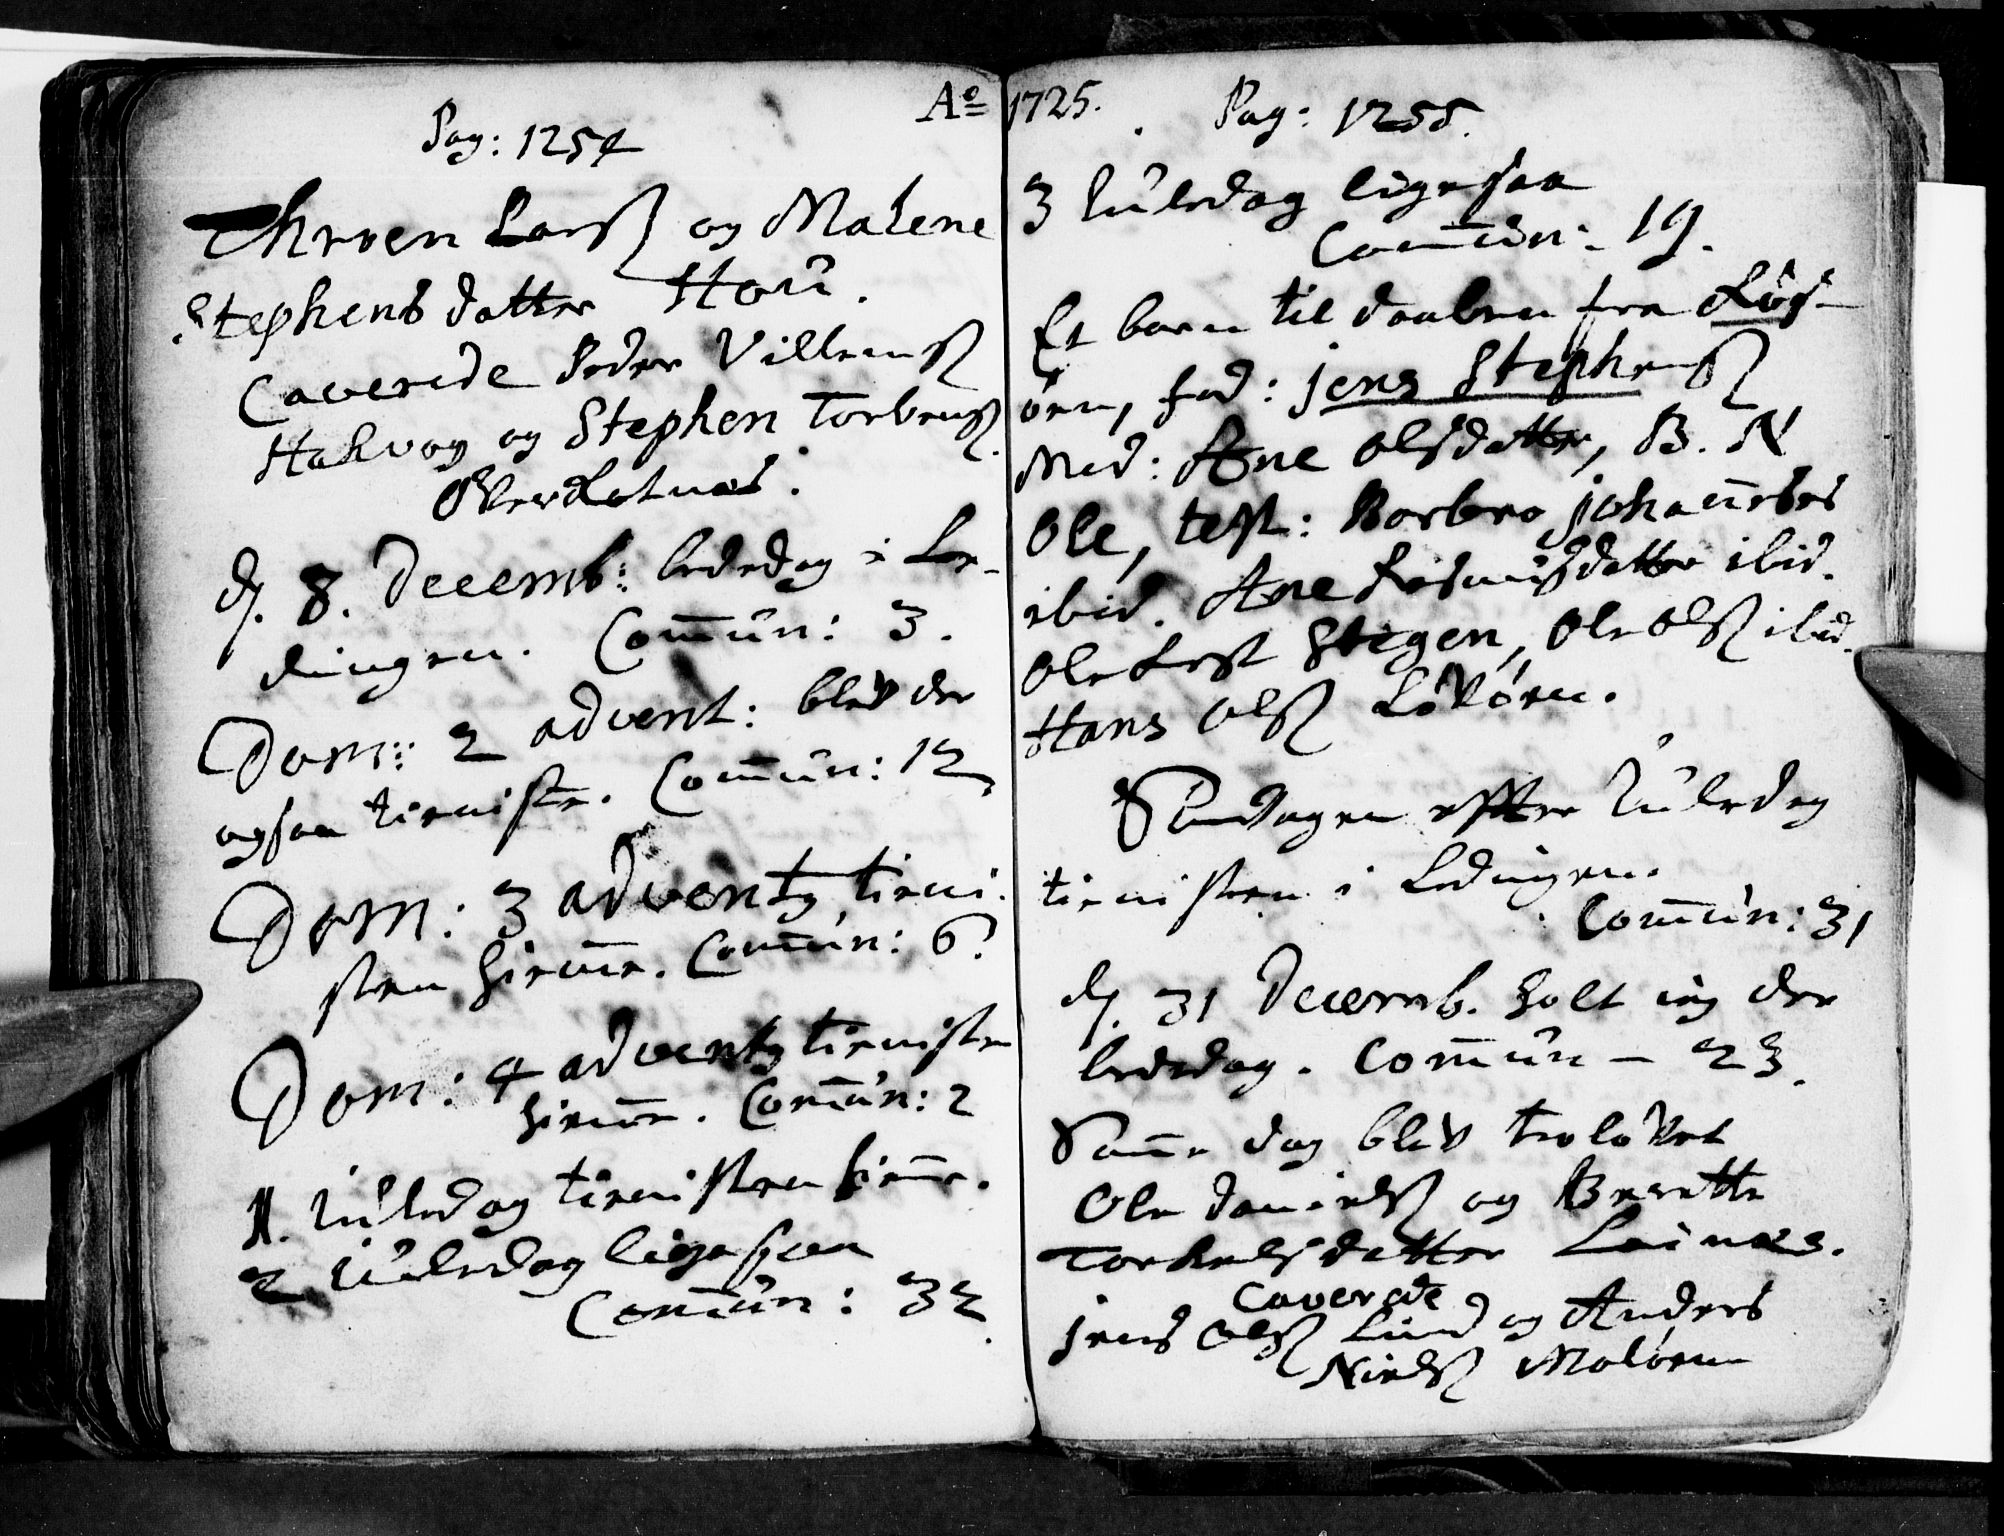 Ao 1725.
Pag: 1254
Throen Larß og Malene
Stephens datter Hou.
Caverede Peder Villumß
Halvog og Stephen Torbenß
d. 8. Decemb: bededag i Le-
dingen. Com̄un: 3.
Dom: 2 advent: blev der
ogsaa tieniste. Com̄un: 12
Dom: 3 advents tieni-
sten hiem̄e. Com̄un: 6
Dom: 4 advents tienisten
hiem̄e. Com̄un: 2
1. Juledag tienisten hiem̄e.
2 Juledag ligesaa
Com̄un: 32
Pag: 1255.
3 Juledag ligesaa
Com̄un: 19.
Et barn til daaben fra
øen, fad: jens Stephenß
Mod: Ane Olsdatter, B. N
Ole, test: Barbra Johannes
ibid. Ane Rasmusdatter ibid.
Ole Stegen, Ole Olß ibid.
Hans Olß Løvøen.
Søndagen efter Juledag
tienisten i Ledingen.
Com̄un: 31
d. 31 Decemb. holt ieg der
bededag. Com̄un - 23.
Sam̄e dag blev trolovet
Ole Danielß og Berette
Torkelsdatter Leinæs.
Caverede
jens Olß Lund og Anders
Nielß Maløen